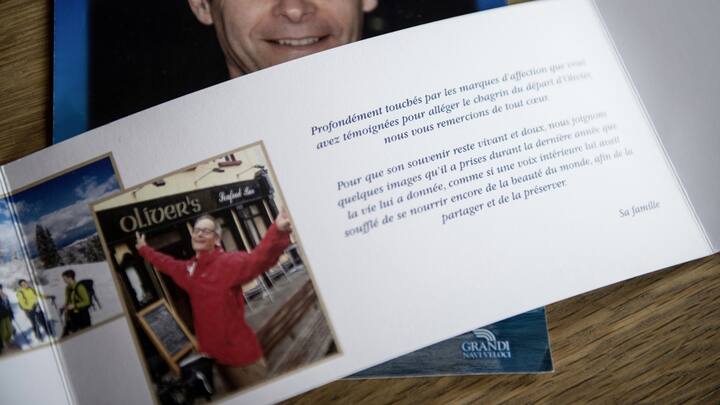 Profondément touchés par les marques d'affection que vous
avez témoignées pour alléger le chagrin du départ d'Olivier,
nous vous remercions de tout cœur.
Pour que son souvenir reste vivant et doux, nous joignons
quelques images qu'il a prises durant la dernière année que
la vie lui a donnée, comme si une voix intérieure lui avait
soufflé de se nourrir encore de la beauté du monde, afin de la
partager et de la préserver.
Sa famille
OLIVER'S
Seafood Bar
GRANDI
NAVI VELOCI